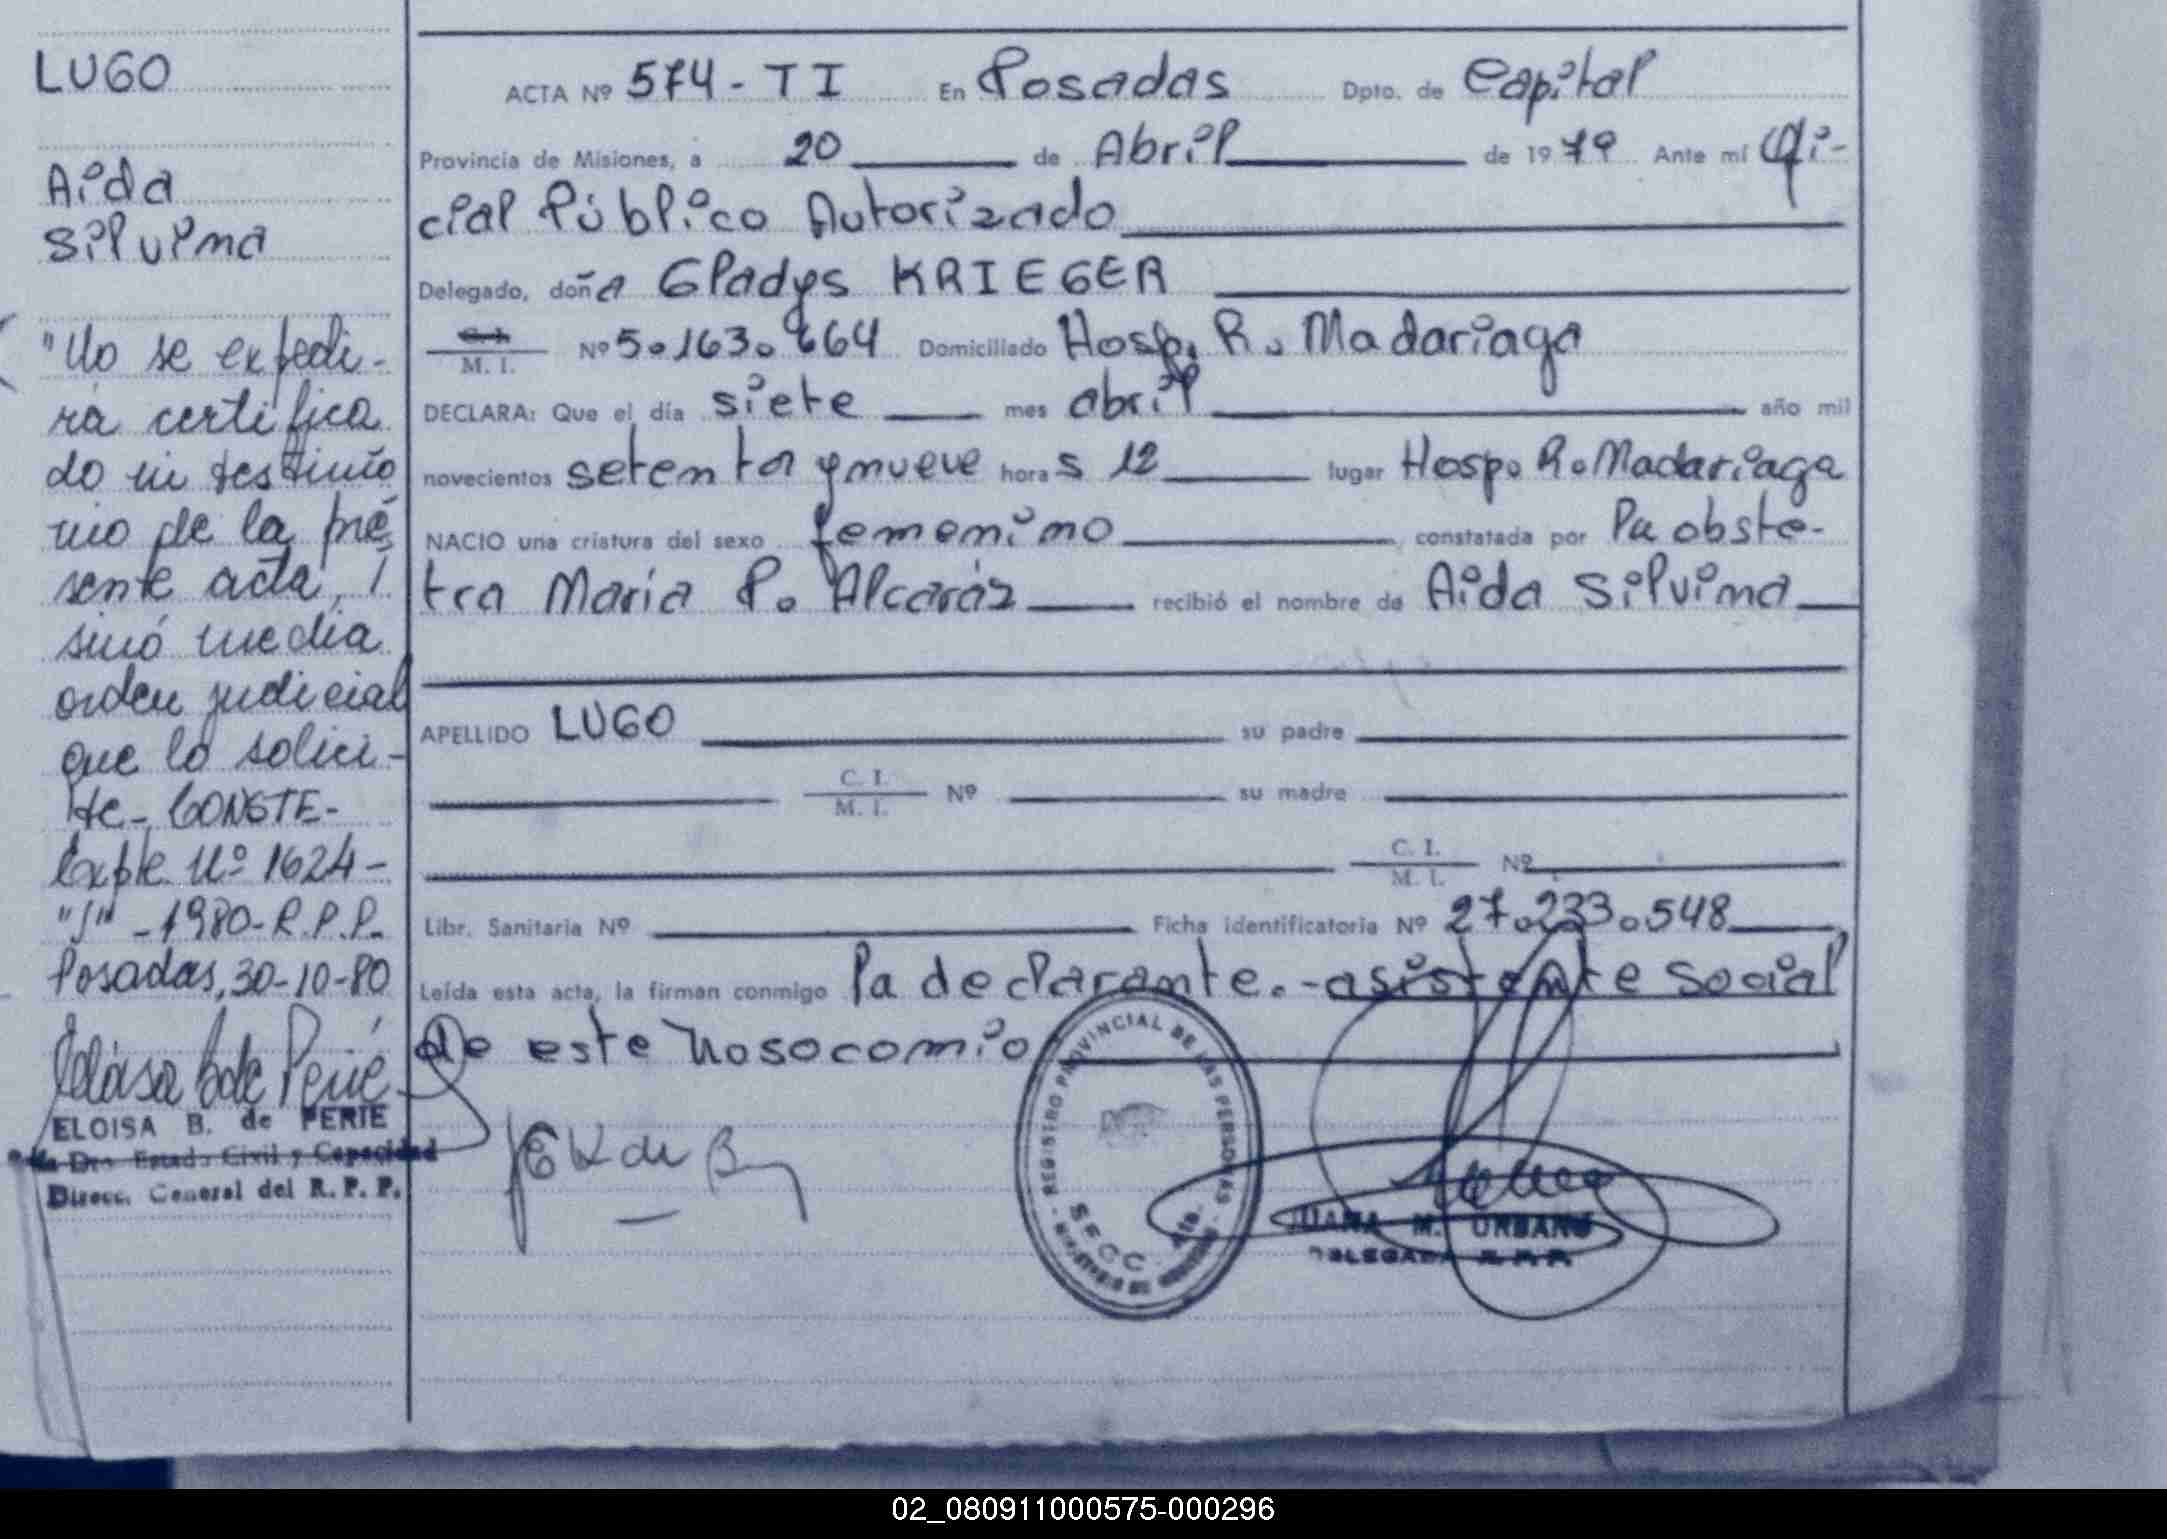 LUGO
Aida
Silvina
"No se expedi-
rá certifica
do ni testimo
nio de la pre
sente acta,
sinó media
orden judicial
que lo solici-
te - CONSTE -
Expte. Nº 1624 -
- 1980 - R.P.P.
Posadas, 30-10-80
ELOISA B. de PERIE
Dro Estado Civil y Capacidad
Direcc. General del R. P. P.
ACTA Nº 574 - TI En Posadas Dpto. de Capital
Provincia de Misiones, a 20 de Abril de 1979 Ante mí Ofi-
cial Público Autorizado
Delegado, doña Gladys KRIEGER
M. I. Nº 5.163.664 Domiciliado Hosp. R. Madariaga
DECLARA: Que el día siete mes abril año mil
novecientos setenta y nueve horas 12 lugar Hosp. R. Madariaga
NACIO una criatura del sexo femenino constatada por la obste-
tra María P. Alcaráz recibió el nombre de Aida Silvina
APELLIDO LUGO su padre
C. I.
M. I. Nº su madre
C. I.
M. I. Nº
Libr. Sanitaria Nº Ficha identificatoria Nº 27.233.548
Leída esta acta, la firman conmigo la declarante.- asistente social
de este nosocomio
REGISTRO PROVINCIAL DE LAS PERSONAS
SECC.
JUANA M. URBANO
DELEGADA R. P. P.
02_080911000575-000296